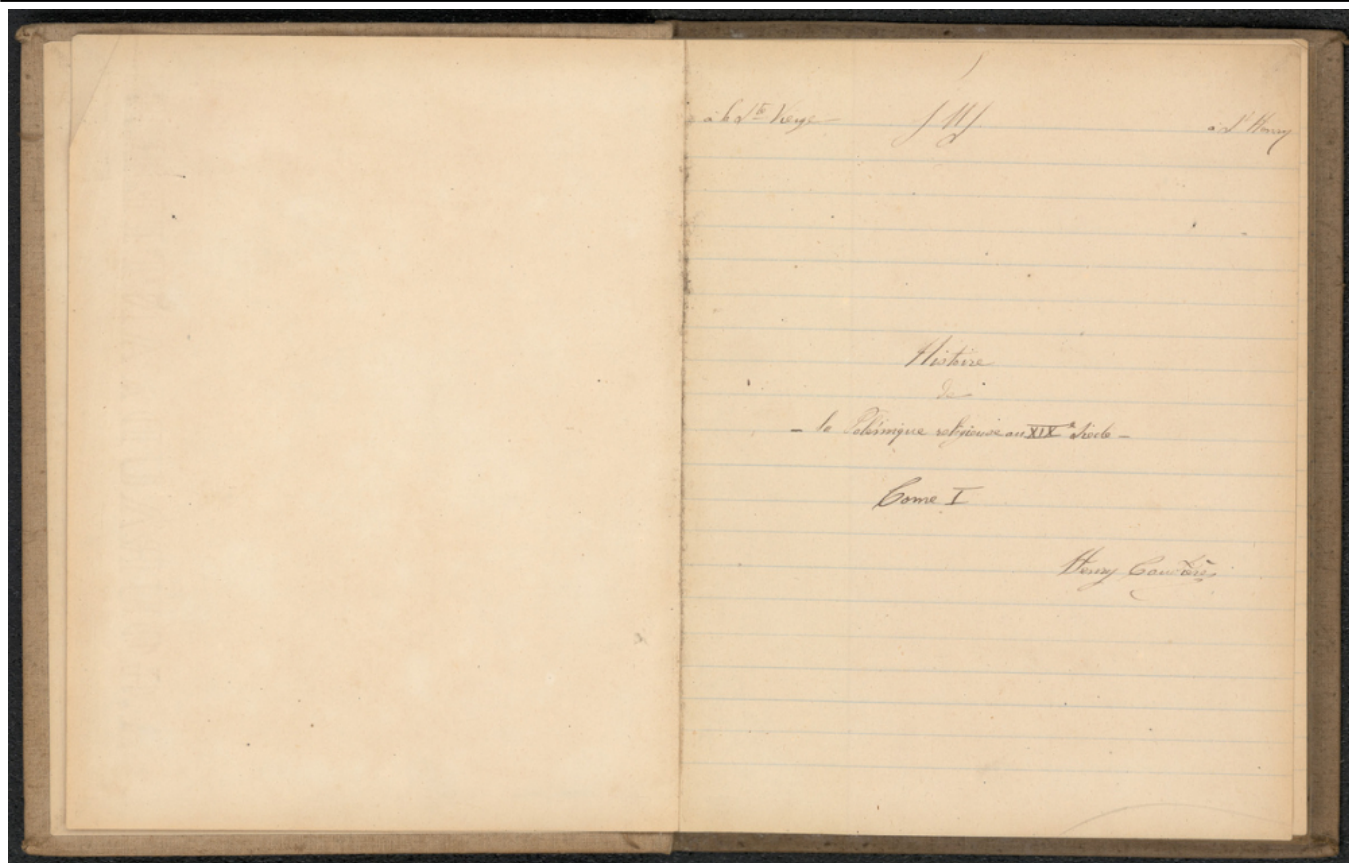 à la Ste Vierge — à St Henry
Histoire
de
— la Polémique religieuse au XIXe Siècle —
Tome I
Henry